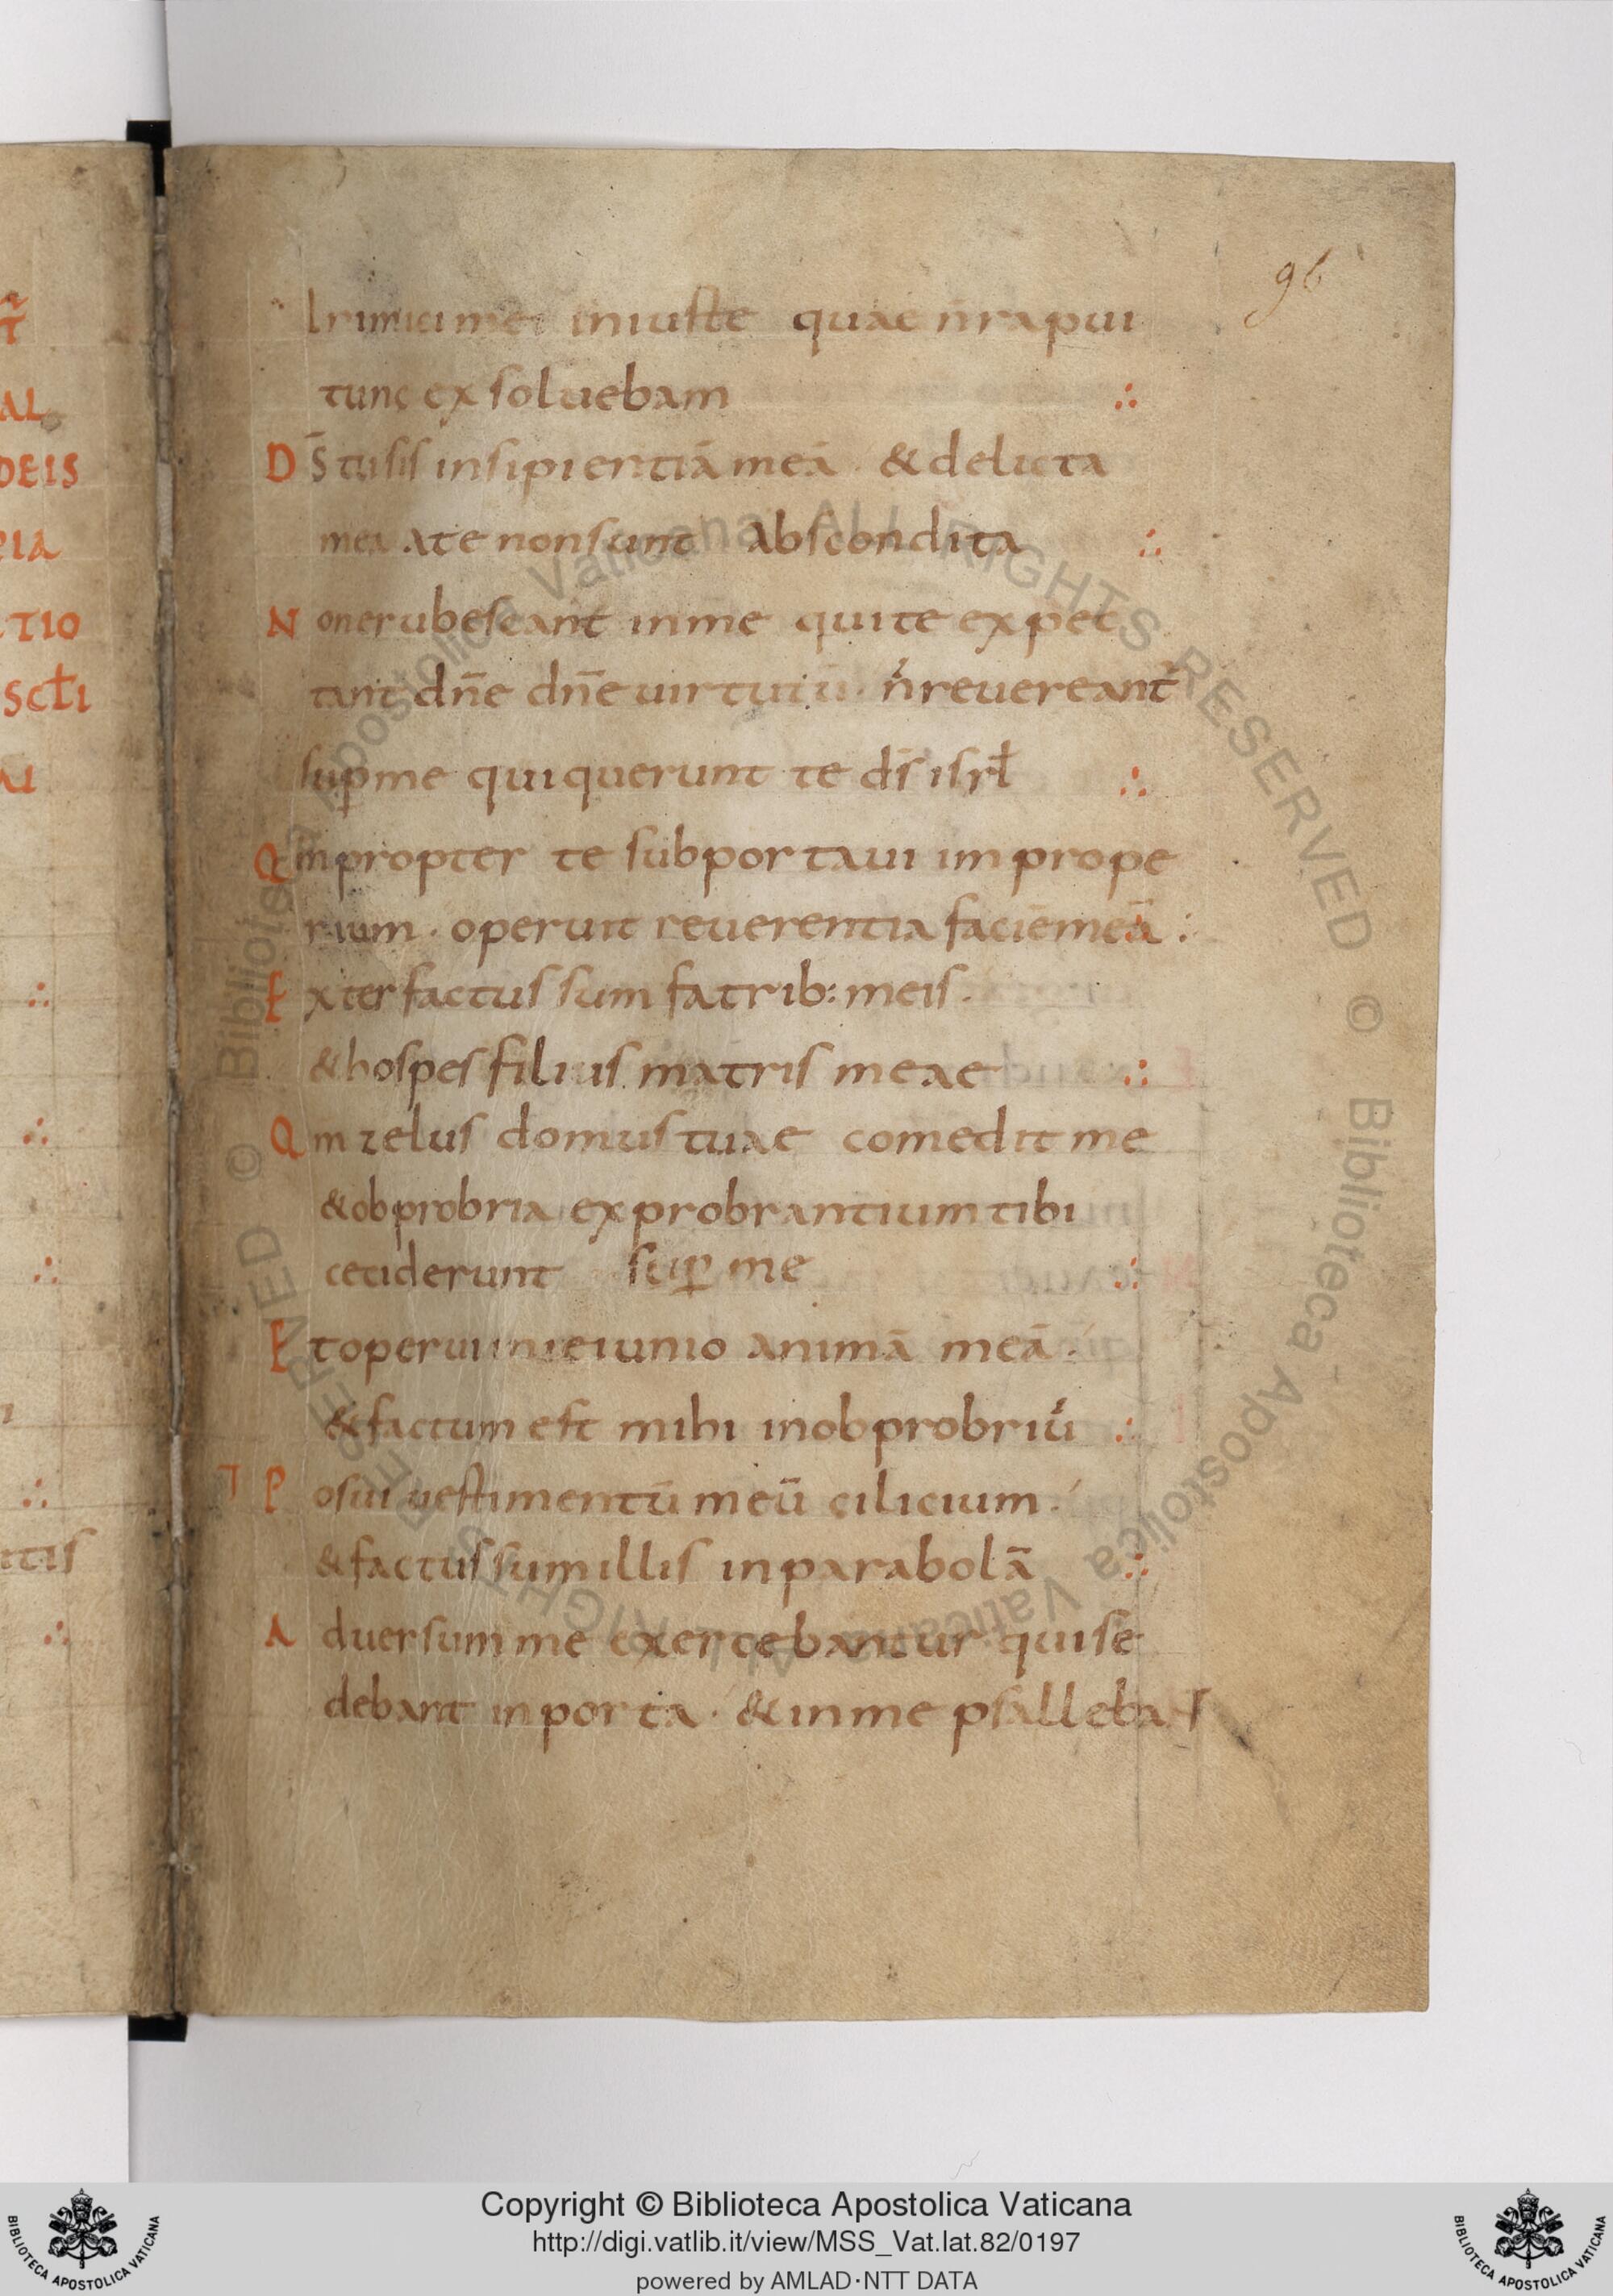 96
inimici mei iniuste quae n̄ rapui
tunc exsoluebam ∴
DS̄ tu sis insipientiā meā · & delicta
mea a te non sunt abscondita ∴
Non erubescant in me qui te expec
tant dn̄e dn̄e uirtutū · n̄ reuereant̄
sup me qui querunt te ds̄ isrł ∴
Qm propter te subportaui imprope
rium · operuit reuerentia faciē meā :
Exter factus sum fatrib: meis ·
& hospes filius matris meae ∴
Qm zelus domus tuae comedit me
& obprobria exprobrantium tibi
ceciderunt sup me ∴
Et operui in ieiunio animā meā ·
& factum est mihi in obprobriū ∴
T Posui uestimentū meū cilicium ·
& factus sum illis in parabolā ∴
Aduersum me exercebantur qui se
debant in porta · & in me psallebaNT
AL
DEIS
TIO
SCŁI
Copyright © Biblioteca Apostolica Vaticana
http://digi.vatlib.it/view/MSS_Vat.lat.82/0197
powered by AMLAD·NTT DATA
BIBLIOTECA APOSTOLICA VATICANA
BIBLIOTECA APOSTOLICA VATICANA
© Biblioteca Apostolica Vaticana ALL RIGHTS RESERVED © Biblioteca Apostolica Vaticana ALL RIGHTS RESERVED